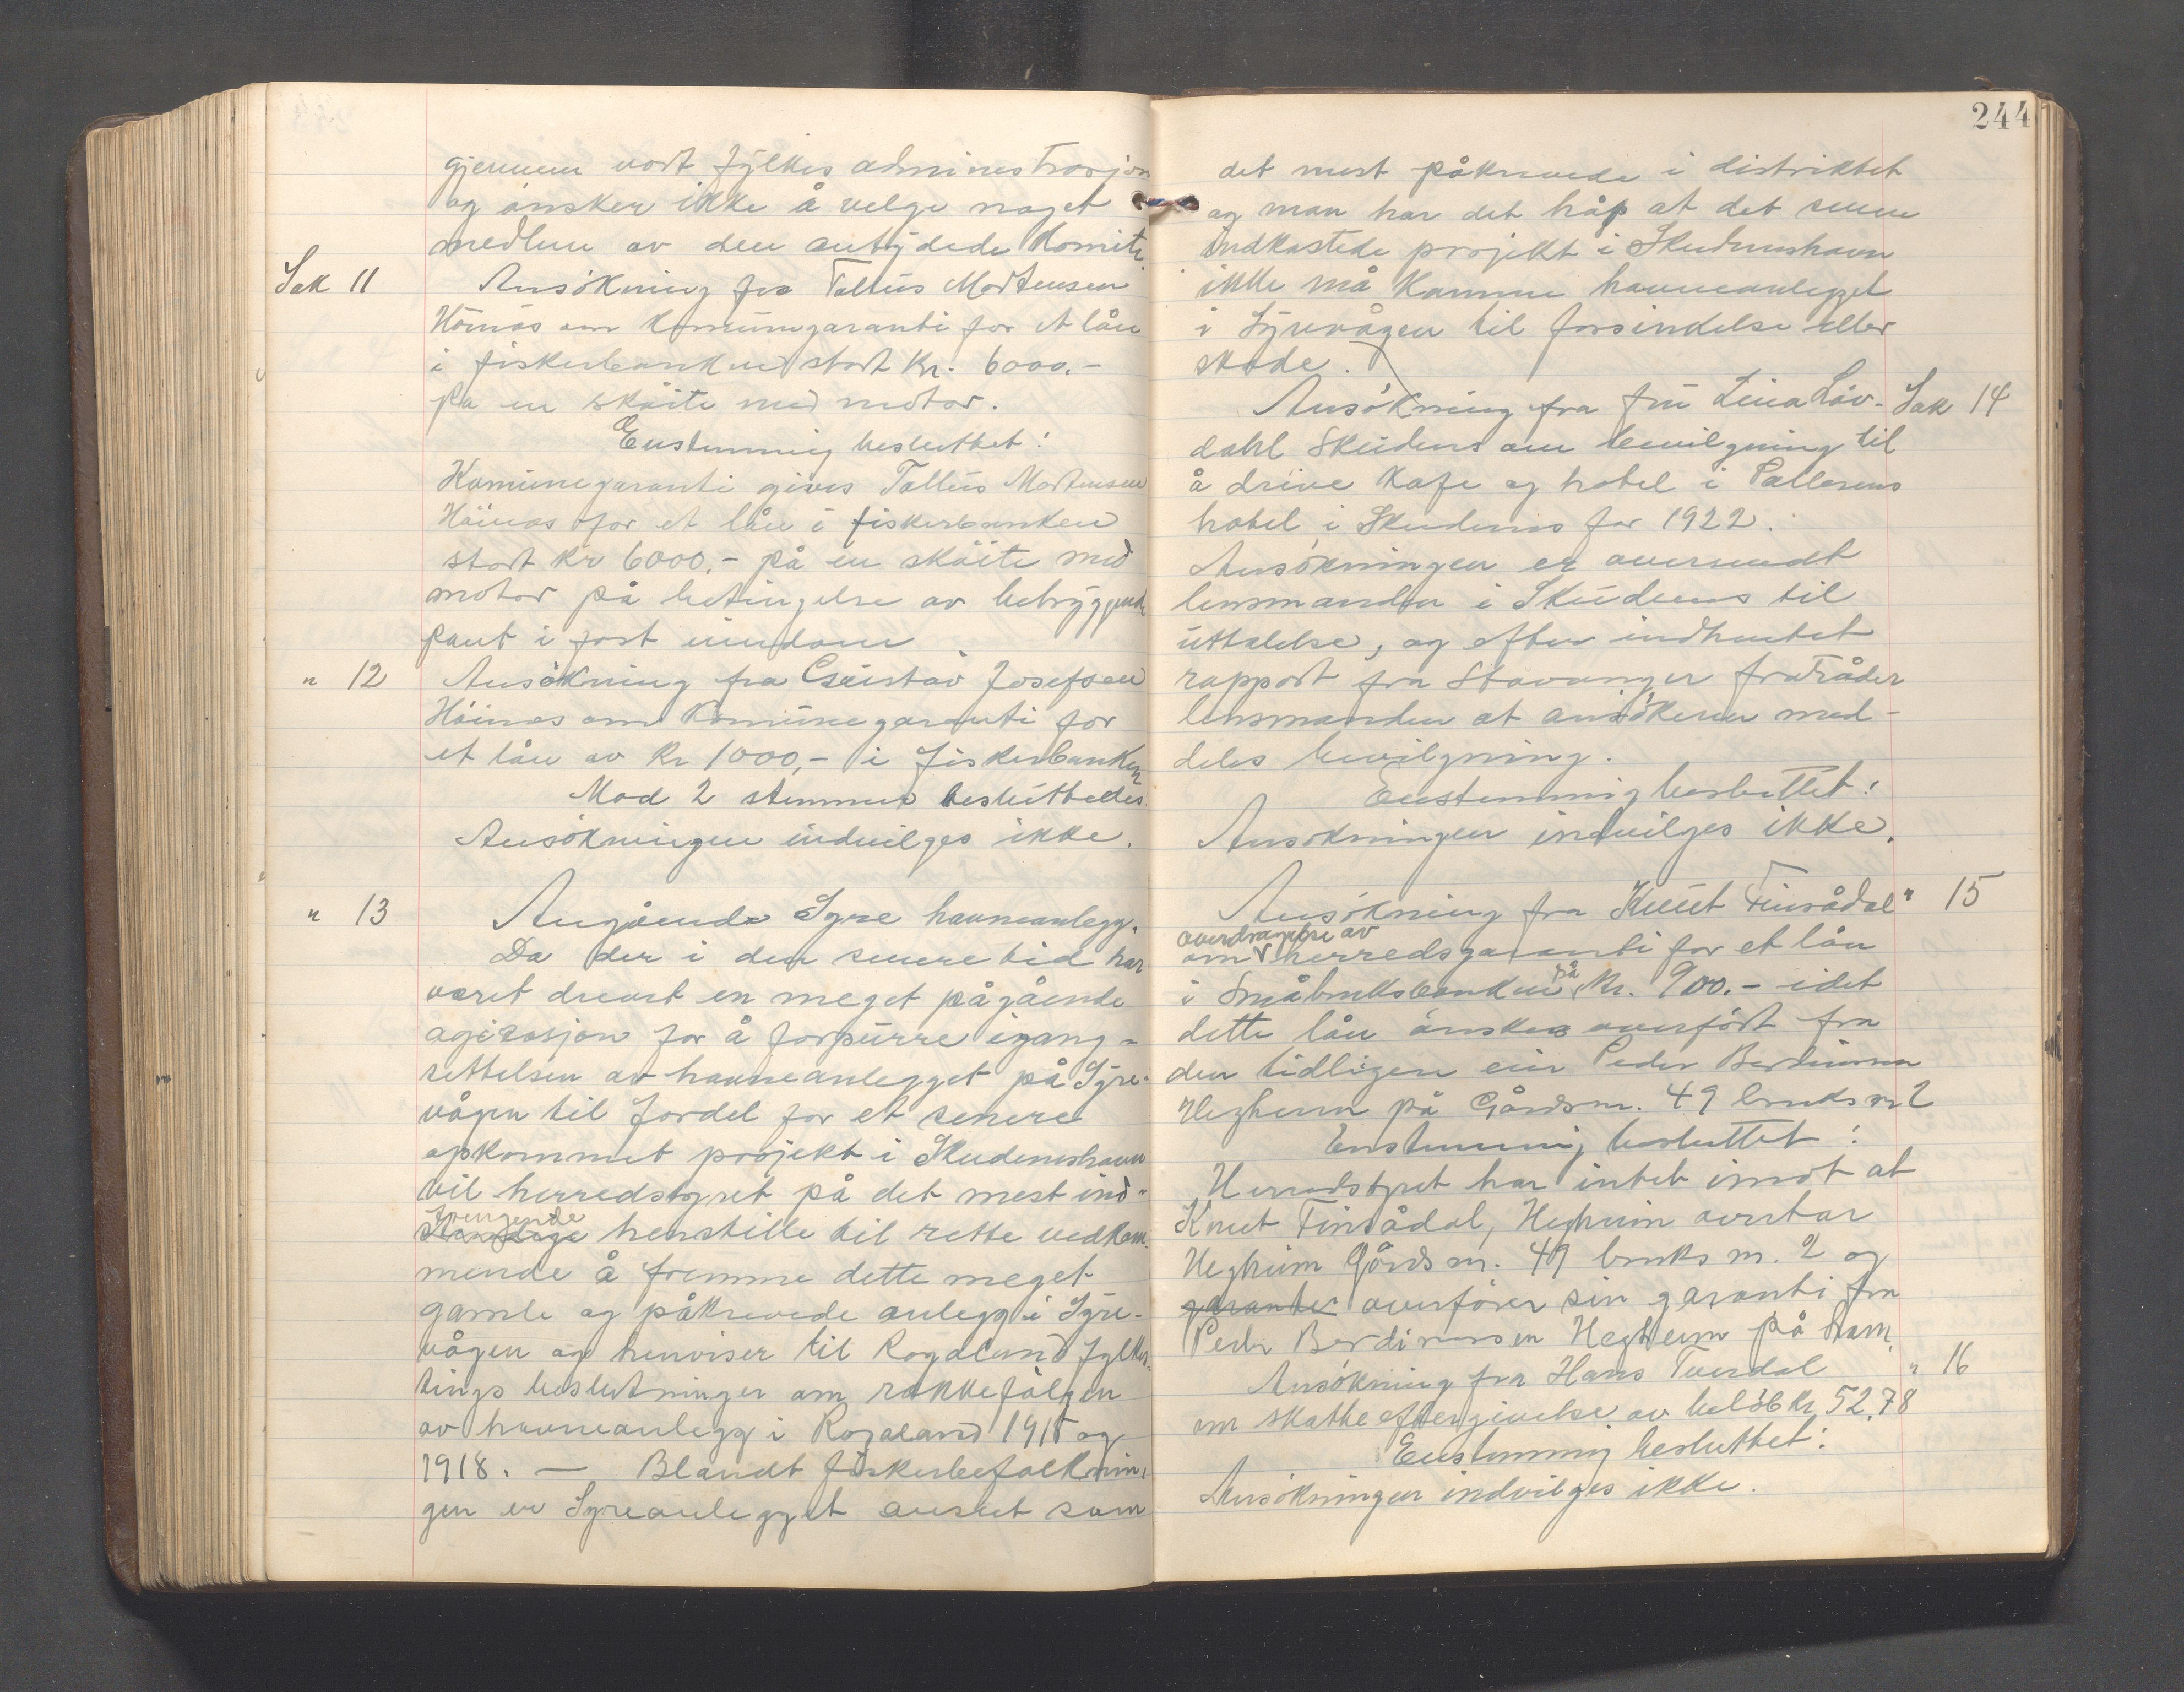 gjennem vort fylkes adminestrasjon
og ønsker ikke å velge noget
medlem av den antydede komite.
Sak 11 Ansökning fra Tallus Mortensen
Höinæs om komunegaranti for et lån
i fiskerbanken stort kr. 6000.-
på en sköite med motor.
Enstemmig besluttet:
Komunegaranti gives Tallus Mortensen
Höinæs for et lån i fiskerbanken
stort kr 6000.- på en sköite med
motor på betingelse av betryggende
pant i fast eiendom
" 12 Ansökning fra Gustav Josefsen
Höines om komunegaranti for
et lån av kr 1000,- i fiskerbanken
Mod 2 stemmer besluttedes:
Ansökningen indvilges ikke.
" 13 Angående Syre havneanlegg.
Da der i den senere tid har
været drevet en meget pågående
agitasjon for å forpurre igang-
settelsen av havneanlegget på Syre-
vågen til fordel for et senere
opkommet projekt i Skudeneshavn
vil herredstyret på det mest ind-
trengende
henstille til rette vedkom-
mende å fremme dette meget
gamle og påkrevede anlegg i Syre-
vågen og henviser til Rogaland fylkes-
tings beslutninger om rækkefølgen
av havneanlegg i Rogaland 1915 og
1918. — Blandt fiskerbefolknin-
gen er Syreanlegget ansett som
244
det mest påkrevede i distriktet
og man har det håp at det senere
indkastede projekt i Skudeneshavn
ikke må komme havneanlegget
i Syrevågen til forsinkelse eller
skade.
Ansökning fra fru Lina Löv- Sak 14
dahl Skudenes om bevilgning til
å drive kafe og hotel i Pallesens
hotel i Skudenes for 1922.
Ansökningen er oversendt
lensmanden i Skudenes til
uttalelse, og efter indhentet
rapport fra Stavanger fraråder
lensmanden at ansökeren med-
deles bevilgning.
Enstemmig besluttet:
Ansökningen indvilges ikke.
Ansökning fra Knut Finsådal " 15
overdragelse av
om herredsgaranti for et lån
i Småbruksbanken på kr. 900.- idet
dette lån ønskes overfört fra
den tidligere eier Peder Berdinesen
Hegheim på Gårdsnr. 49 bruksnr 2
Enstemmig besluttet:
Herredstyret har intet imot at
Knut Finsådal, Hegheim overtar
Hegheim Gårdsnr. 49 bruksnr. 2 og
garanter overfører sin garanti fra
Peder Berdinesen Hegheim på ham.
Ansökning fra Hans Tverdal " 16
om skatteeftergivelse av belöb kr. 52,78
Enstemmig besluttet:
Ansökningen indvilges ikke.